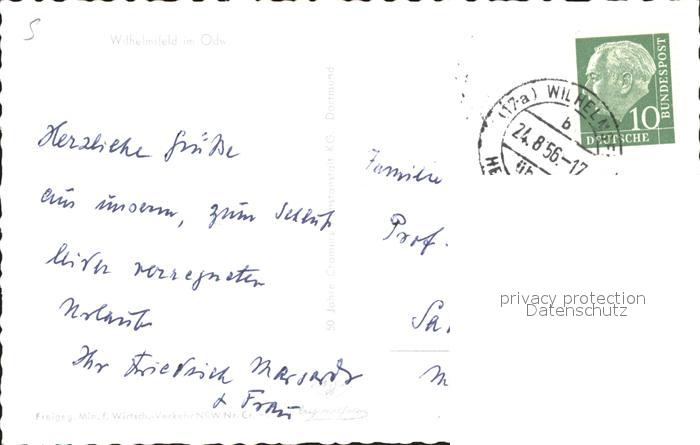 5
Wilhelmsfeld im Odw.
Herzliche Grüße
aus unserem, zum Schluß
leider verregneten
Urlaub
Ihr Friedrich
& Frau
Familie
Prof.
Sa
M
50 Jahre Cramers Kunstanstalt KG. Dortmund
Freigeg. Min. f. Wirtsch. u. Verkehr NRW Nr. Cr.
(17a) WILHELMSF
b
24.8.56.-17
üb
HE
10
DEUTSCHE
BUNDESPOST
privacy protection
Datenschutz